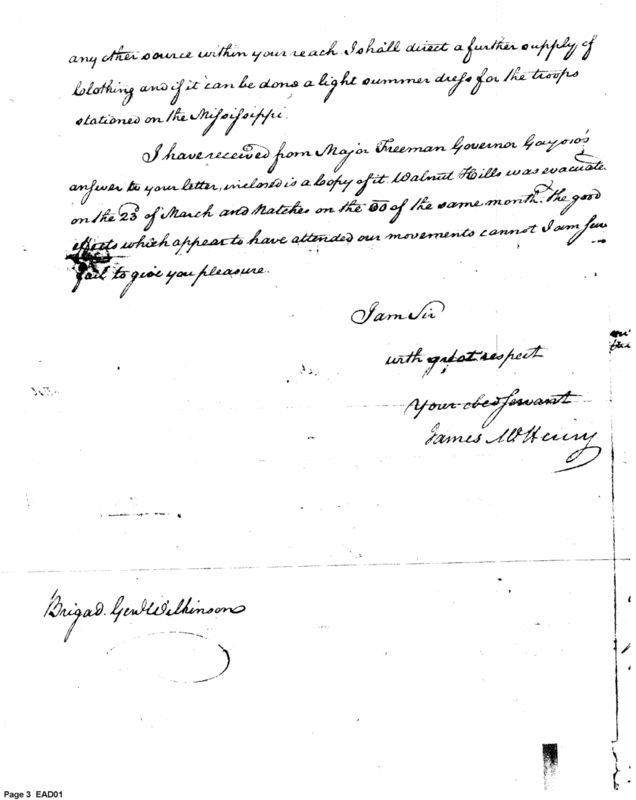 any other source within your reach. I shall direct a further supply of
Clothing and if it can be done a light summer dress for the troops
stationed on the Mississippi.
I have received from Major Freeman Governor Gayoso's
answer to your letter, inclosed is a Copy of it. Walnut Hills was evacuate
on the 23d of March and Natches on the of the same month. The good
effects which appear to have attended our movements cannot I am
fail to give you pleasure.
I am Sir
with great respect
Your obed servant
James McHenry
Brigad. Genl Wilkinson
Page 3 EAD01